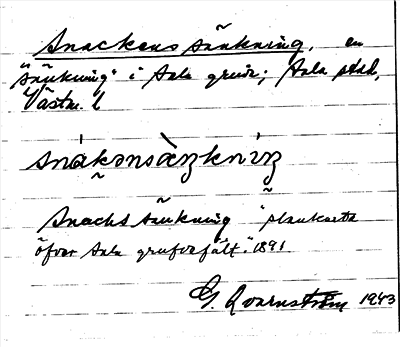 Snackens sänkning, en
"sänkning" i Sala gruva; Sala stad,
Västm. l
snákənsàŋkníŋ
Snacks sänkning "plankarta
öfver Sala grufvefält". 1891.
G. Qvarnström 1943